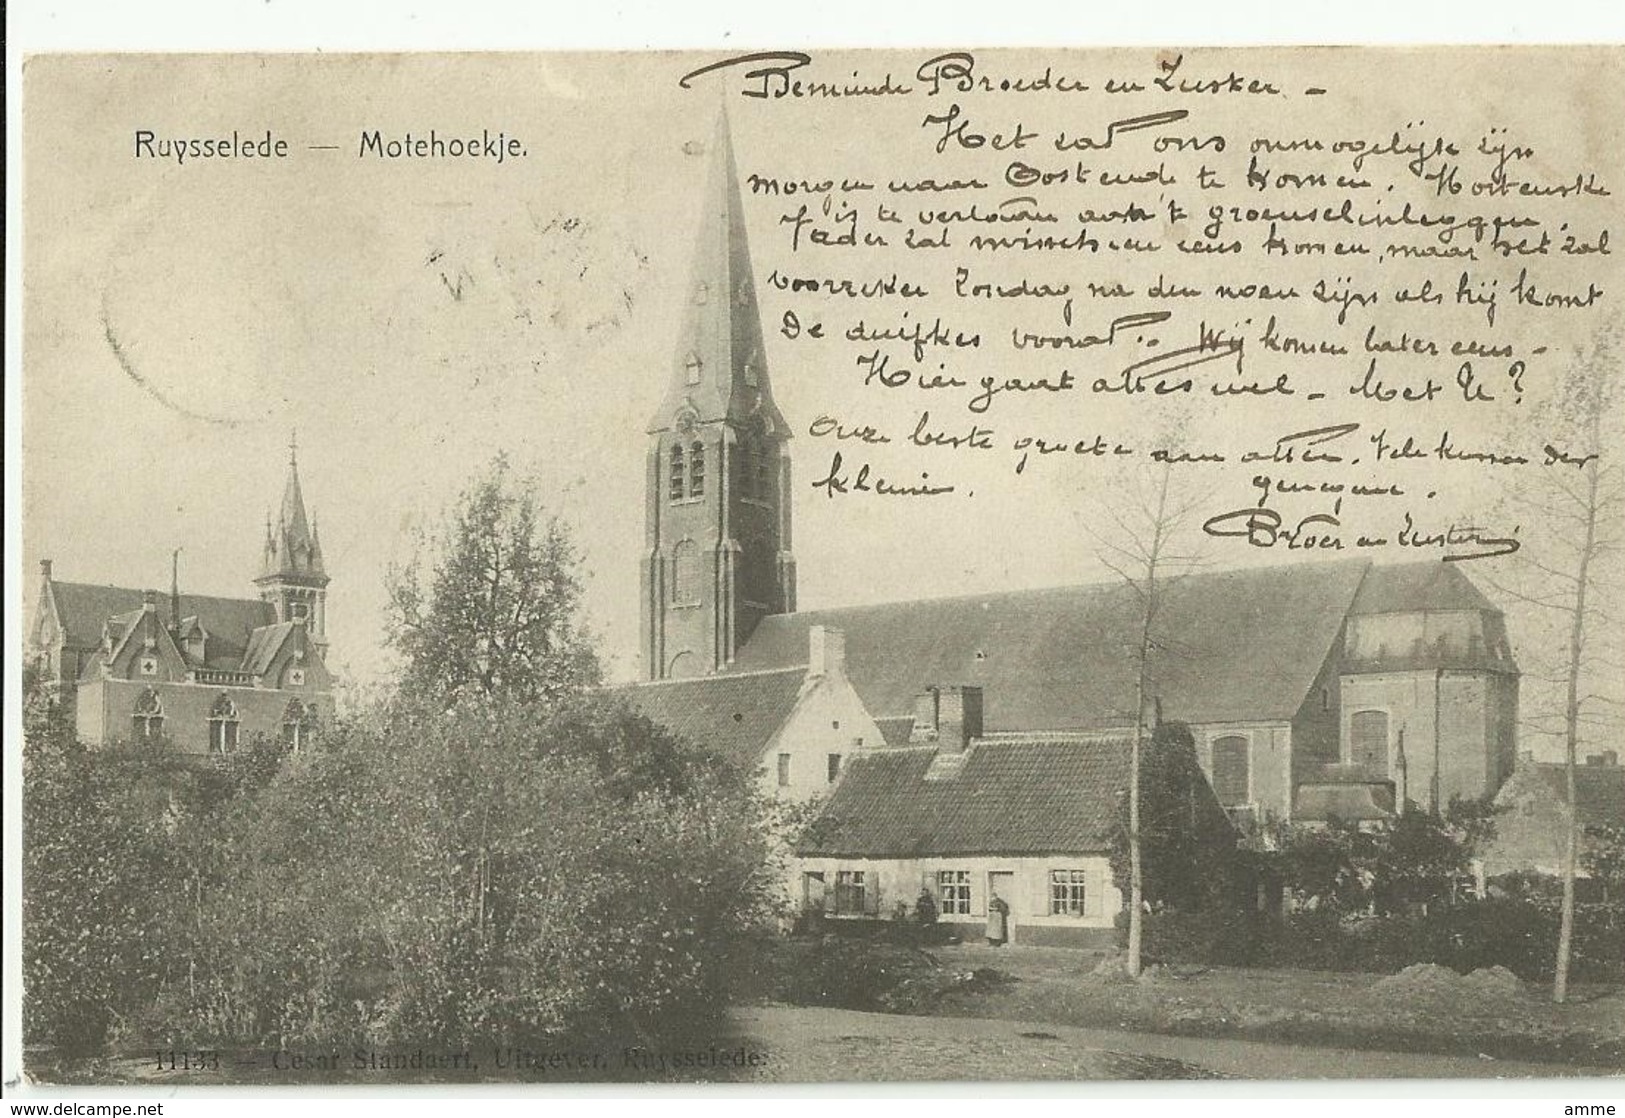 Ruysselede — Motehoekje.
Beminde Broeder en Zusker. –
Het zal ons onmogelijk zijn
morgen naar Oostende te komen. Hortenske
is te verlouwn aan 't groenselinleggen.
Vader zal misschien eens komen, maar het zal
voorzeker Zondag na den noen zijn als hij komt
De duifkes vooral.. Wij komen later eens –
Hier gaat alles wel – Met U?
Onze beste groete aan allen. Vele kussen der
kleinen.
genegene.
Broer en Zuster
11133 — Cesar Standaert, Uitgever, Ruysselede.
amme